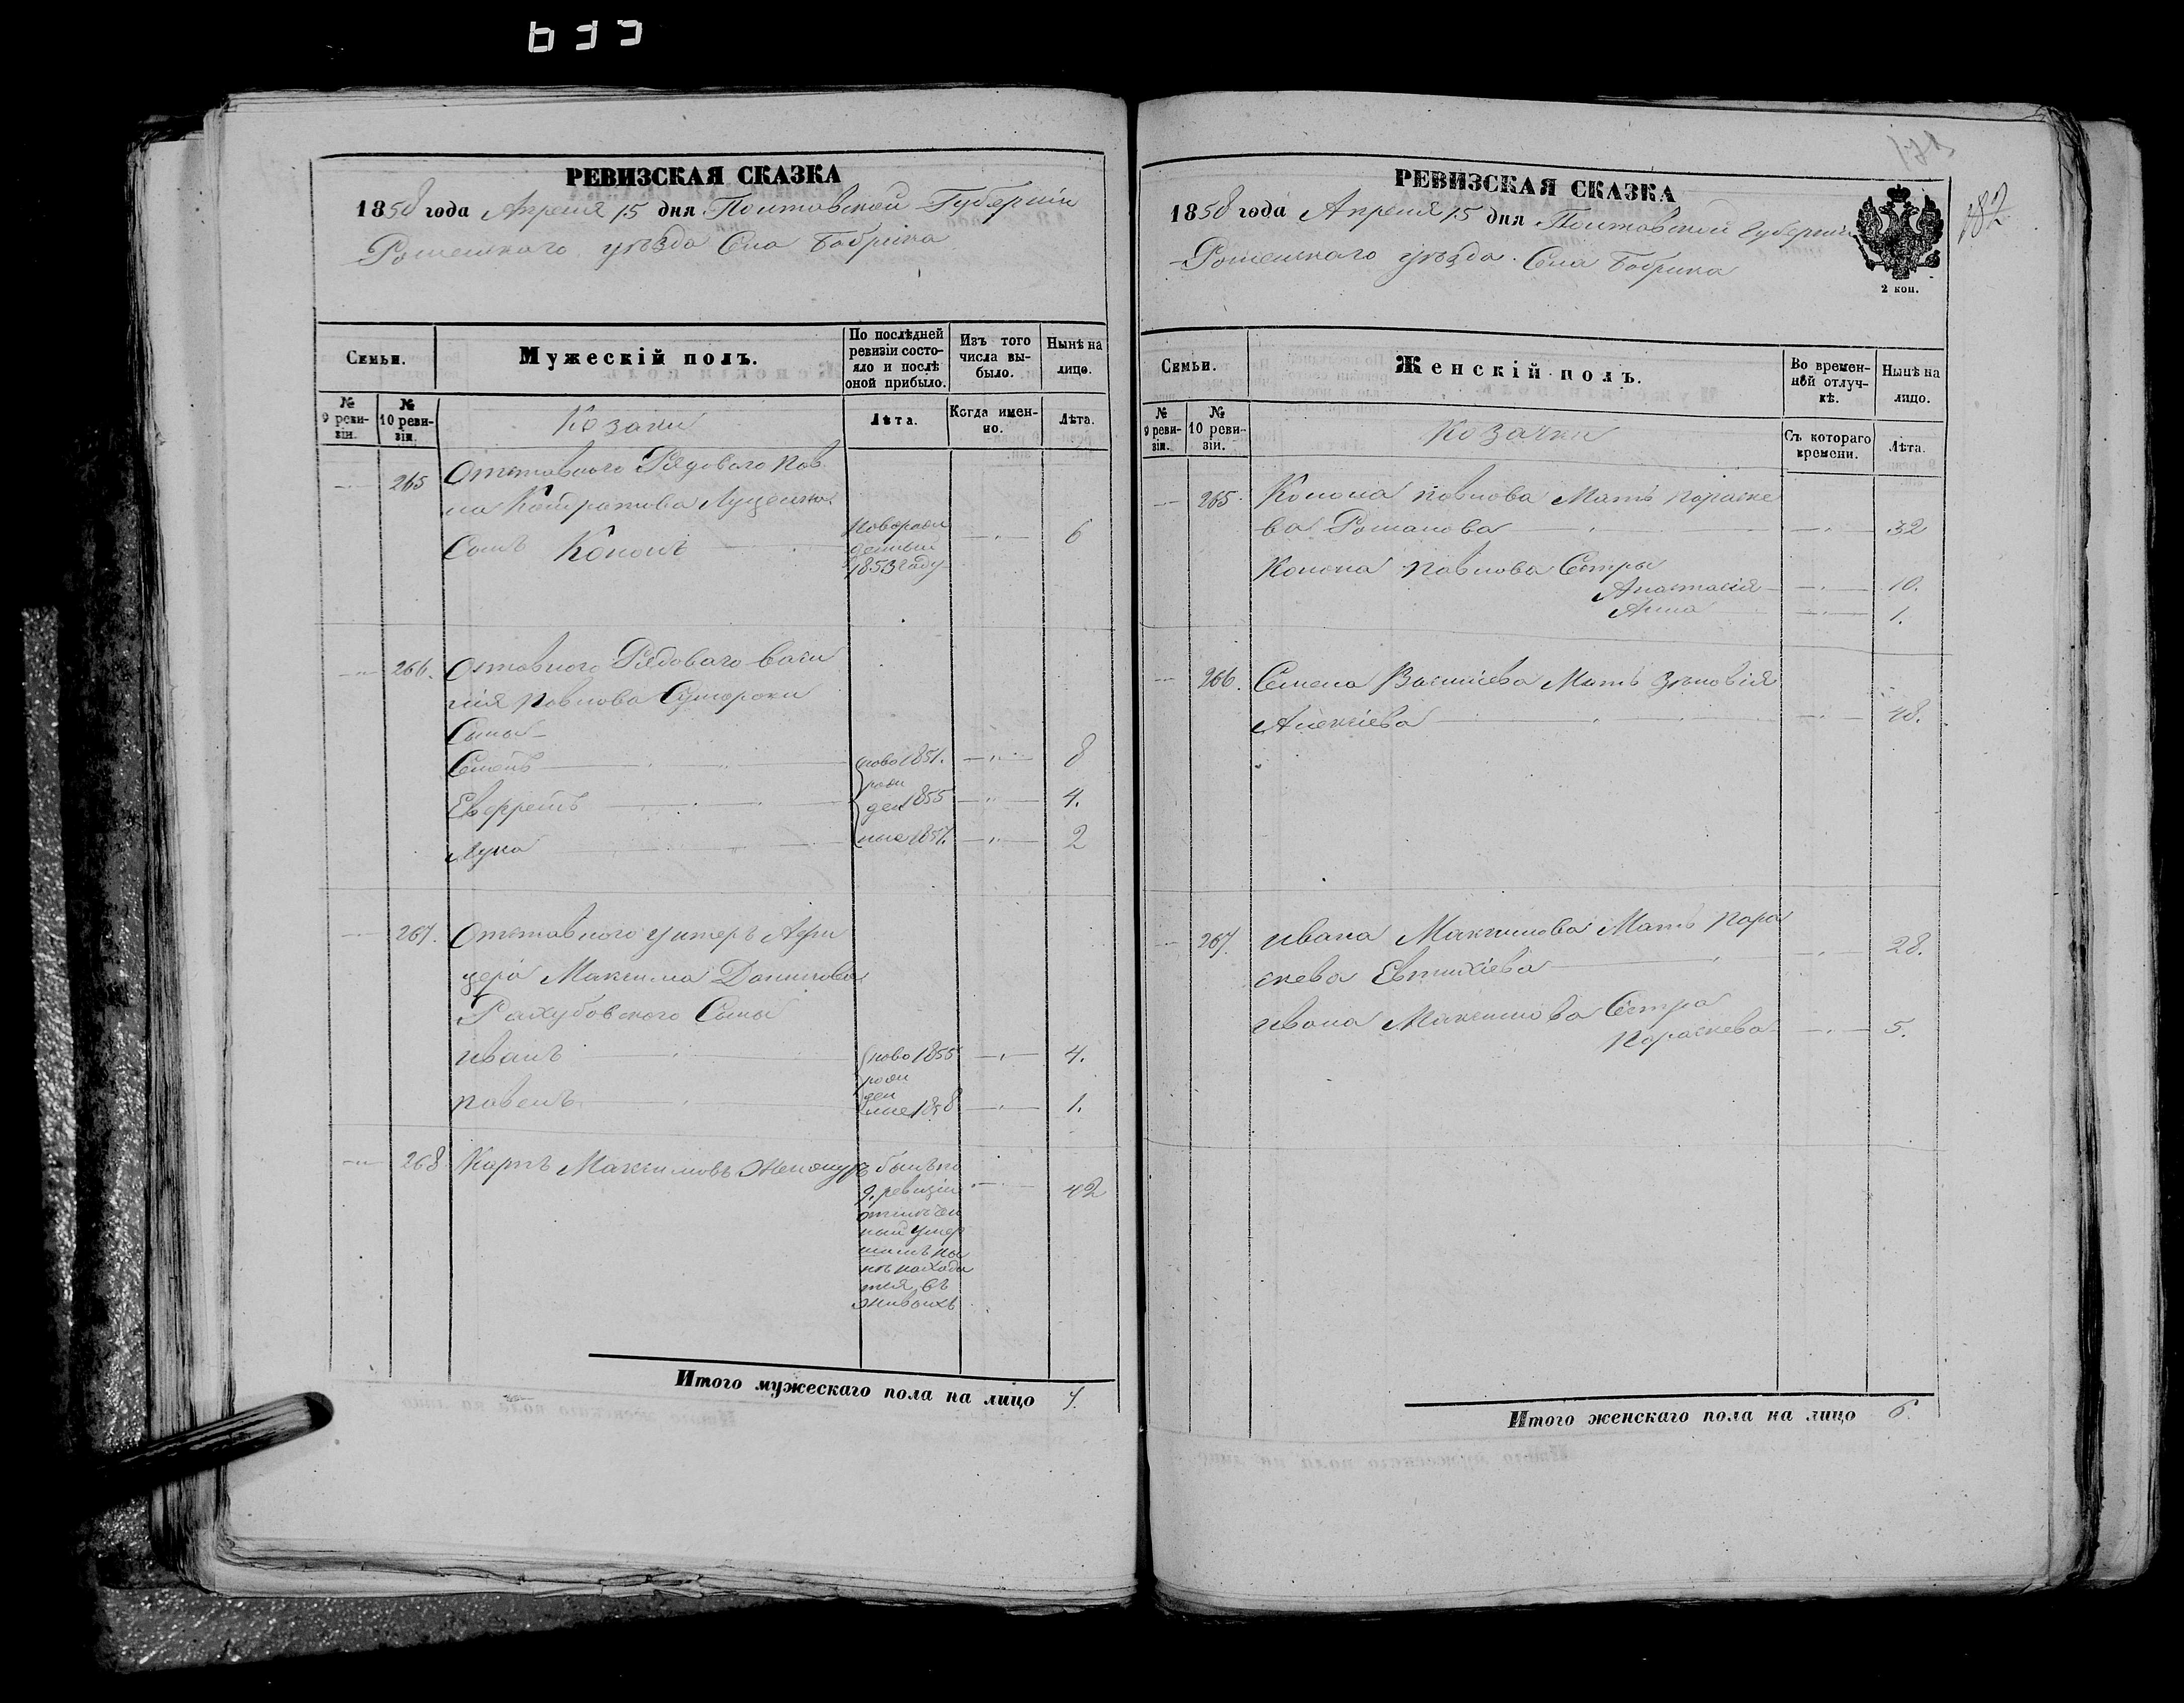 РЕВИЗСКАЯ СКАЗКА
1858 года Апреля 15 дня Полтавской Губерніи
Роменского уѣзда Села Бобрика
Семьи.
Мужескій полъ.
По послѣдней ревизіи состояло и послѣ оной прибыло.
Изъ того числа выбыло.
Нынѣ на лицо.
№ 9 ревизіи.
№ 10 ревизіи.
Козаки
Лѣта.
Когда именно.
Лѣта.
265 Отставного Рядового Пав
ла Луценка
Сынъ Кононъ
Новорож
денный
1853 году
6
266. Отставного Рядоваго Васи
лія Павлова Сумароки
Сыны
Семенъ ново 1851. 8
рож
Евфремъ ден 1855 4.
Лука ные 1857. 2
267. Отставного Унтеръ Афи
цера Максима Данилова
Рахубовского Сыны
Иванъ ново 1855 4.
рож
ден
Павелъ ные 1858 1.
268 Карпъ Максимовъ былъ по
9. ревизіи
42
ный умер
шимъ ны
нѣ находи
тся въ
живыхъ
Итого мужескаго пола на лицо 7.
182
РЕВИЗСКАЯ СКАЗКА
1858 года Апреля 15 дня Полтавской Губерніи
Роменского уѣзда Села Бобрика
2 коп.
Семьи.
Женскій полъ.
Во временной отлучкѣ.
Нынѣ на лицо.
№ 9 ревизіи.
№ 10 ревизіи.
Козачки
Съ котораго времени.
Лѣта.
265. Конона Павлова Мать Параске
ва Романова 32
Конона Павлова Сестры
Анастасія 10.
Анна 1.
266. Семена Василіева Мать Зѣновія
Алексіева 48.
267. Ивана Максимова Мать Пара
скева Евтихіева 28.
Ивана Максимова Сестра
Параскева 5.
Итого женскаго пола на лицо 6.